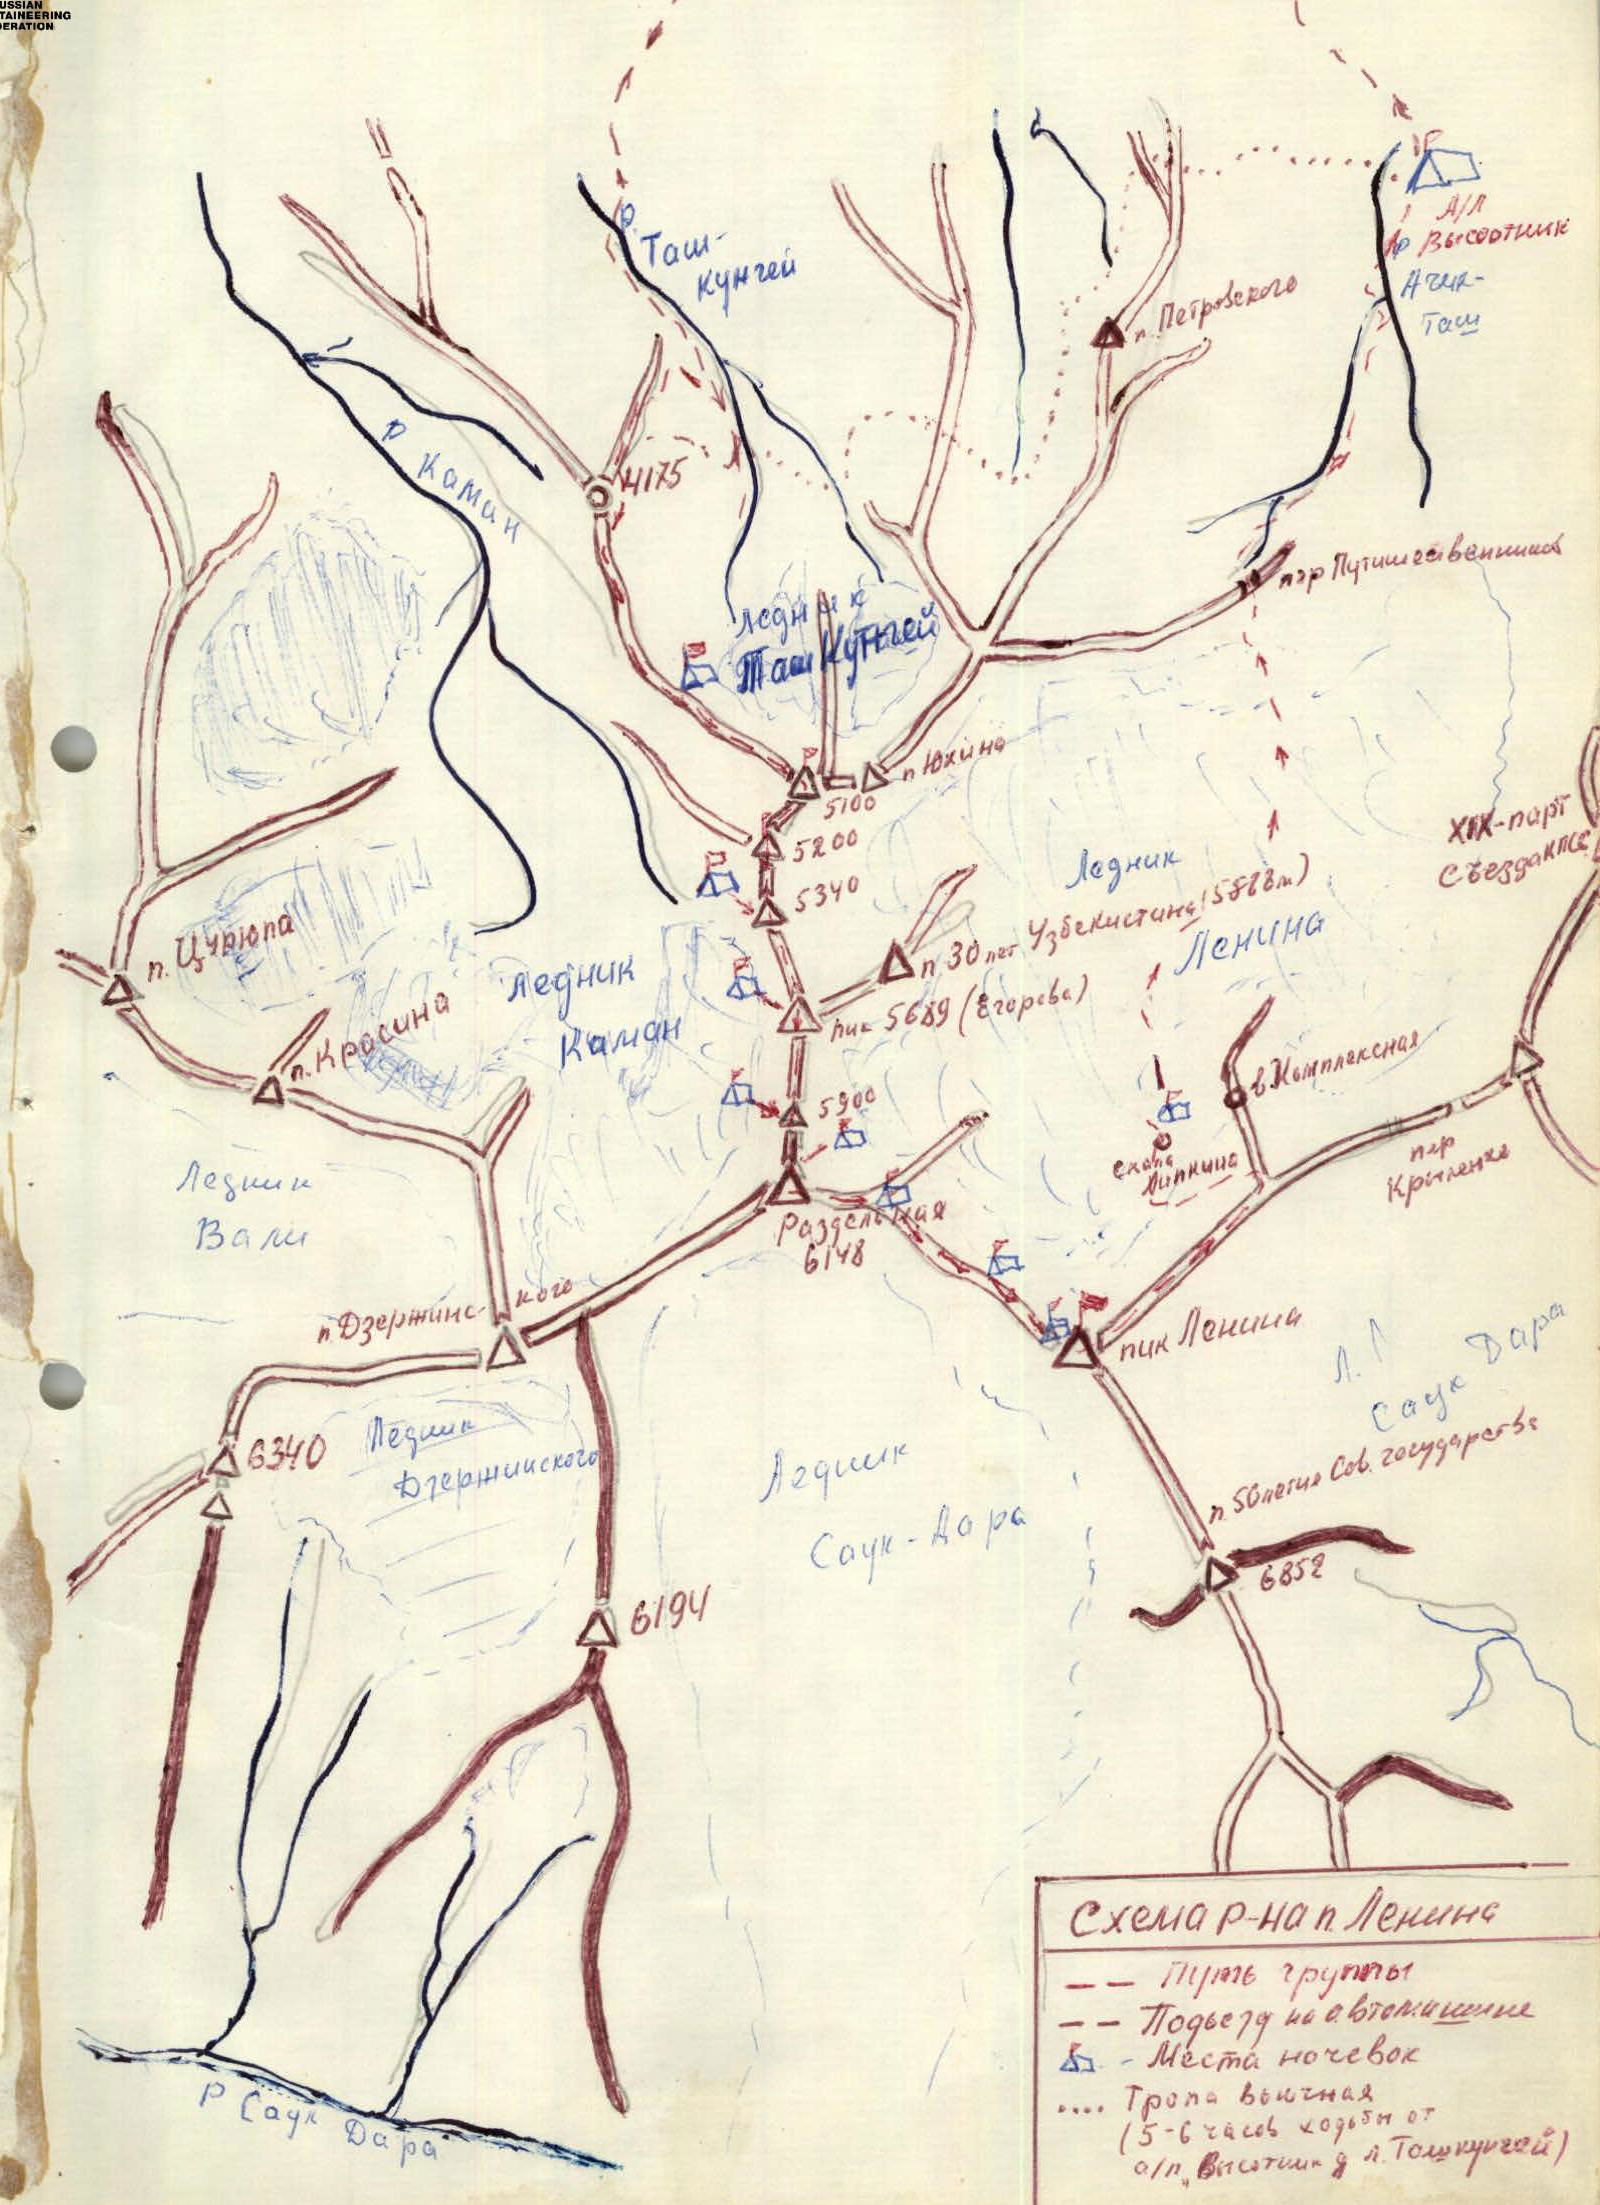 USSIAN
TAINEERING
DERATION
р.
Таш-
кунгей
А/Л
Высотник
р
Ачик-
Таш
п. Петровского
р Каман
4175
пер Путишественников
ледник
Таш Кунгей
п Юхина
5100
5200
5340
XIX-парт
съезда КПСС
Ледник
Ленина
п 30 лет Узбекистана (5888м)
п. Цурюпа
п. Красина
Ледник
Каман
пик 5689 (Егорова)
5900
в. Комплексная
скала
Липкина
пер
Крыленко
Ледник
Вали
Раздельная
6148
п Дзержинс-кого
пик Ленина
Л.
Саук Дара
6340
Ледник
Дзержинского
Ледник
Саук-Дара
п. 50летия Сов. государства
6852
6194
р Саук Дара
Схема р-на п. Ленина
-- Путь группы
-- Подьезд на автомашине
- Места ночевок
.... Тропа вьючная
(5-6 часов ходьбы от
а/л „Высотник д л. Ташкунгей)